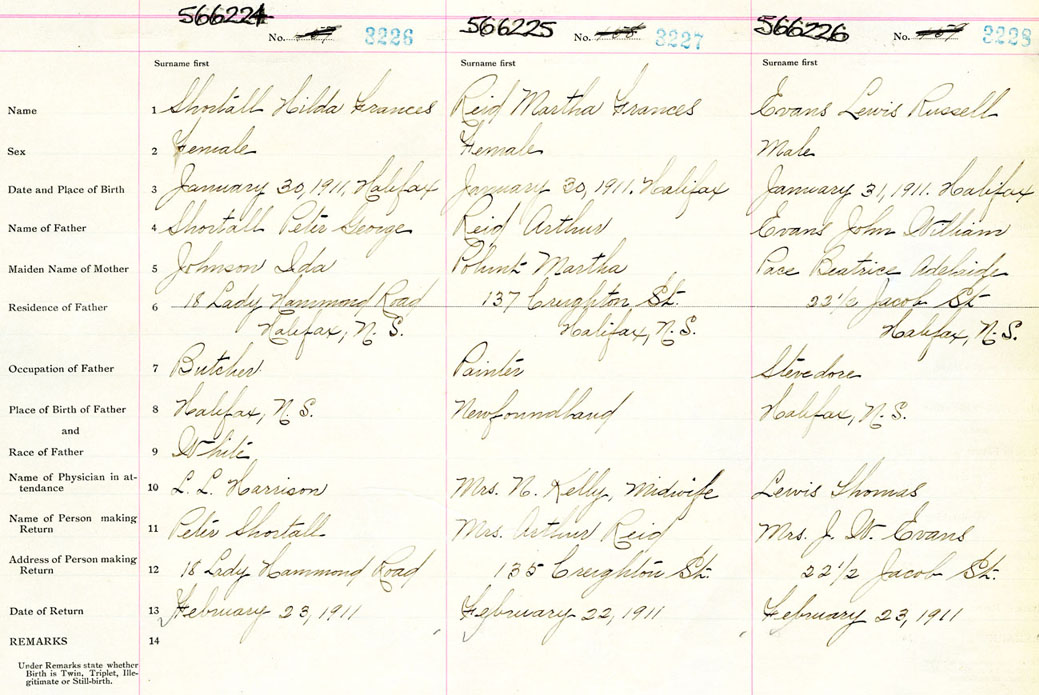 566224 566225 566226
No. 3226 No. 3227 No. 3228
Surname first Surname first Surname first
Name 1 Shortall Hilda Frances Reid Martha Frances Evans Lewis Russell
Sex 2 Female Female Male
Date and Place of Birth 3 January 30, 1911, Halifax January 30, 1911. Halifax January 31, 1911. Halifax
Name of Father 4 Shortall Peter George Reid Arthur Evans John William
Maiden Name of Mother 5 Johnson Ida Martha Pace Beatrice Adelaide
Residence of Father 6 18 Lady Hammond Road 137 Creighton St. 22 1/2 Jacob St
Halifax, N.S. Halifax, N.S. Halifax, N.S.
Occupation of Father 7 Butcher Painter Stevedore
Place of Birth of Father 8 Halifax, N.S. Newfoundland Halifax, N.S.
and
Race of Father 9 White
Name of Physician in at-
tendance 10 L. L. Harrison Mrs. N. Kelly, Midwife Lewis Thomas
Name of Person making
Return 11 Peter Shortall Mrs. Arthur Reid Mrs. J. W. Evans
Address of Person making
Return 12 18 Lady Hammond Road 135 Creighton St. 22 1/2 Jacob St.
Date of Return 13 February 23, 1911 February 22, 1911 February 23, 1911
REMARKS 14
Under Remarks state whether
Birth is Twin, Triplet, Ille-
gitimate or Still-birth.